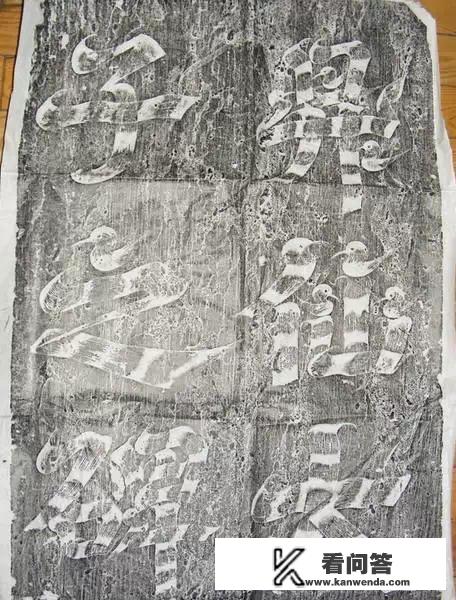 昇仙太
子之碑
看问答
www.kanwenda.com